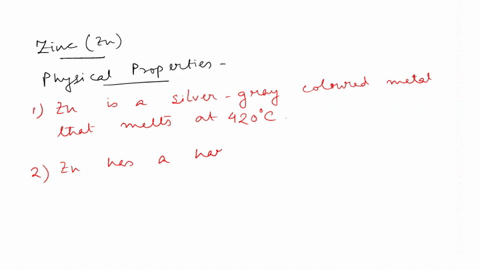 Zinc (Zn)
Physical Properties -
1) Zn is a silver-gray coloured metal
that melts at 420°C.
2) Zn has a har